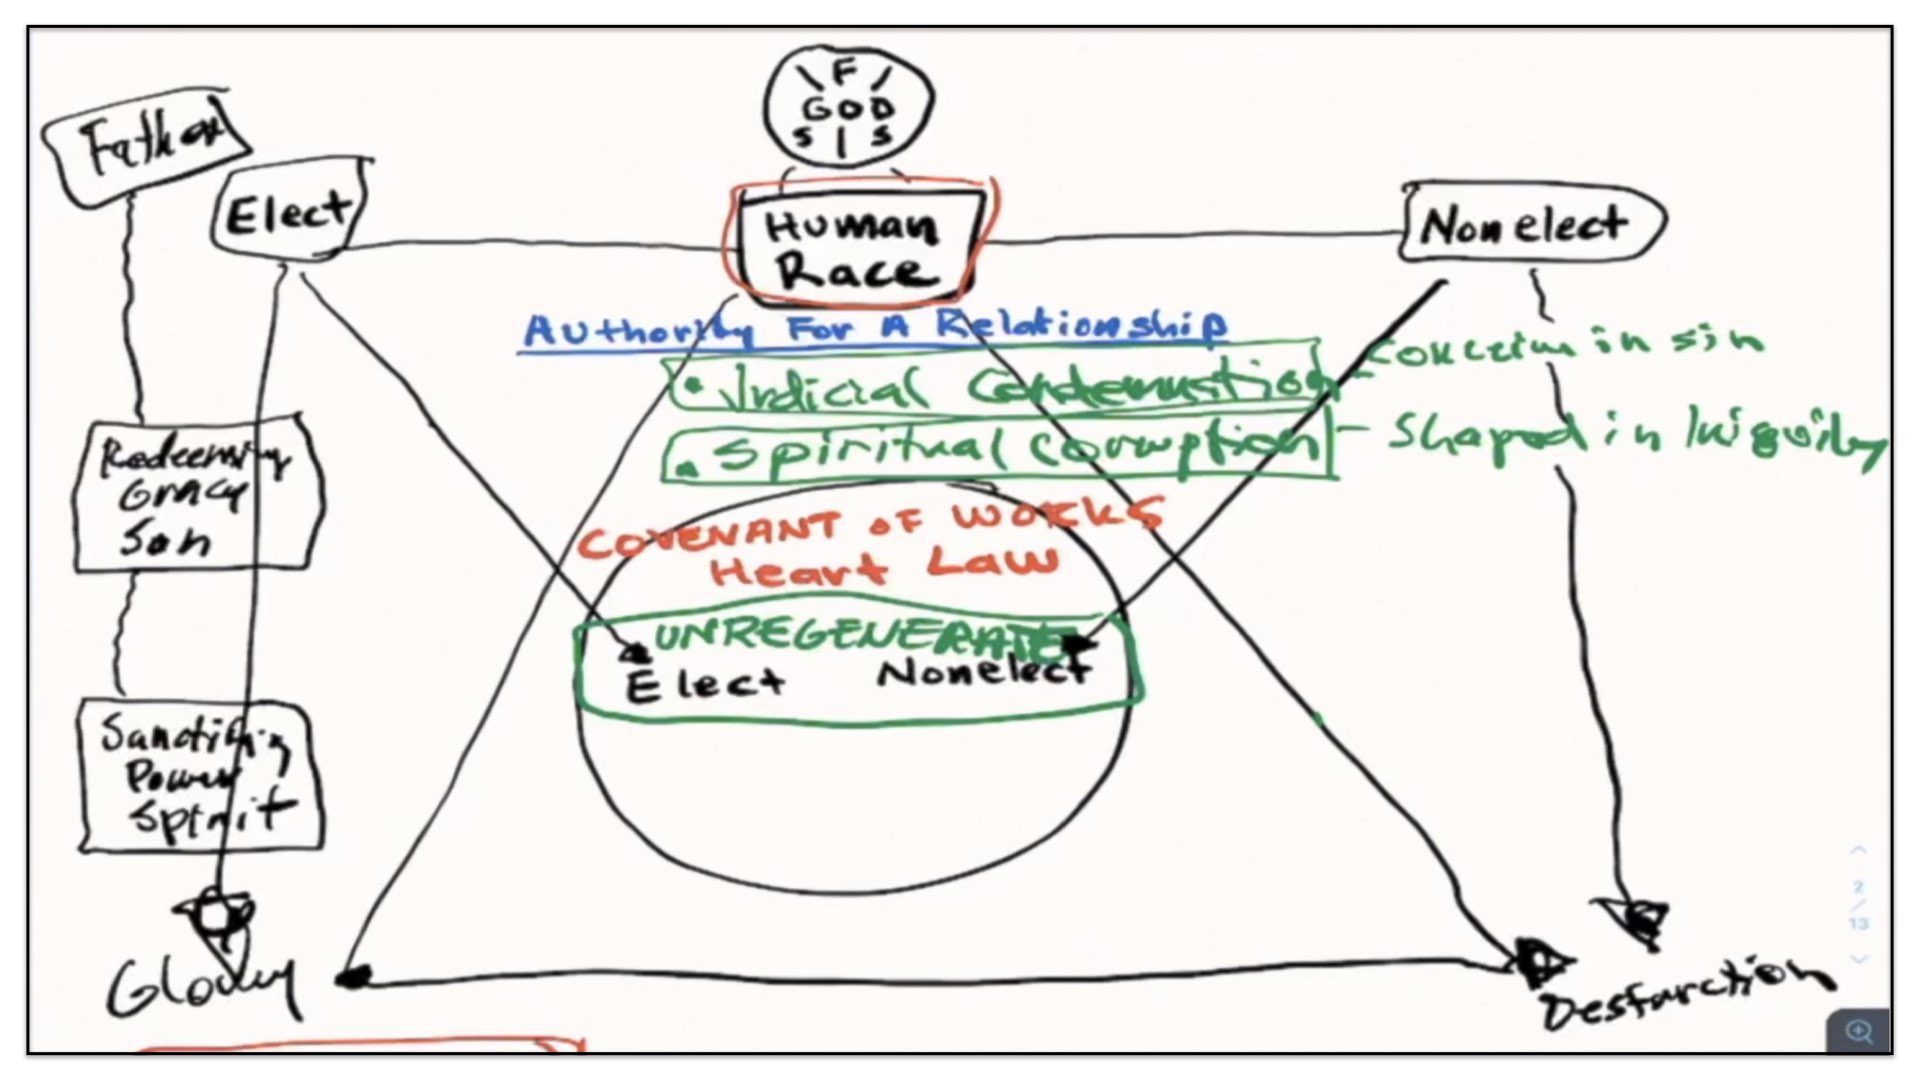 \ F /
GOD
S | S
Father
Elect
Human
Race
Nonelect
Authority For A Relationship
• Judicial Condemnation - Conceive in sin
• Spiritual Corruption - Shaped in Iniquity
Redeeming
Gracy
Son
COVENANT OF WORKS
Heart Law
UNREGENERATE
Elect Nonelect
Sanctifing
Power
Spirit
Glowy
Desfurction
2
/
13